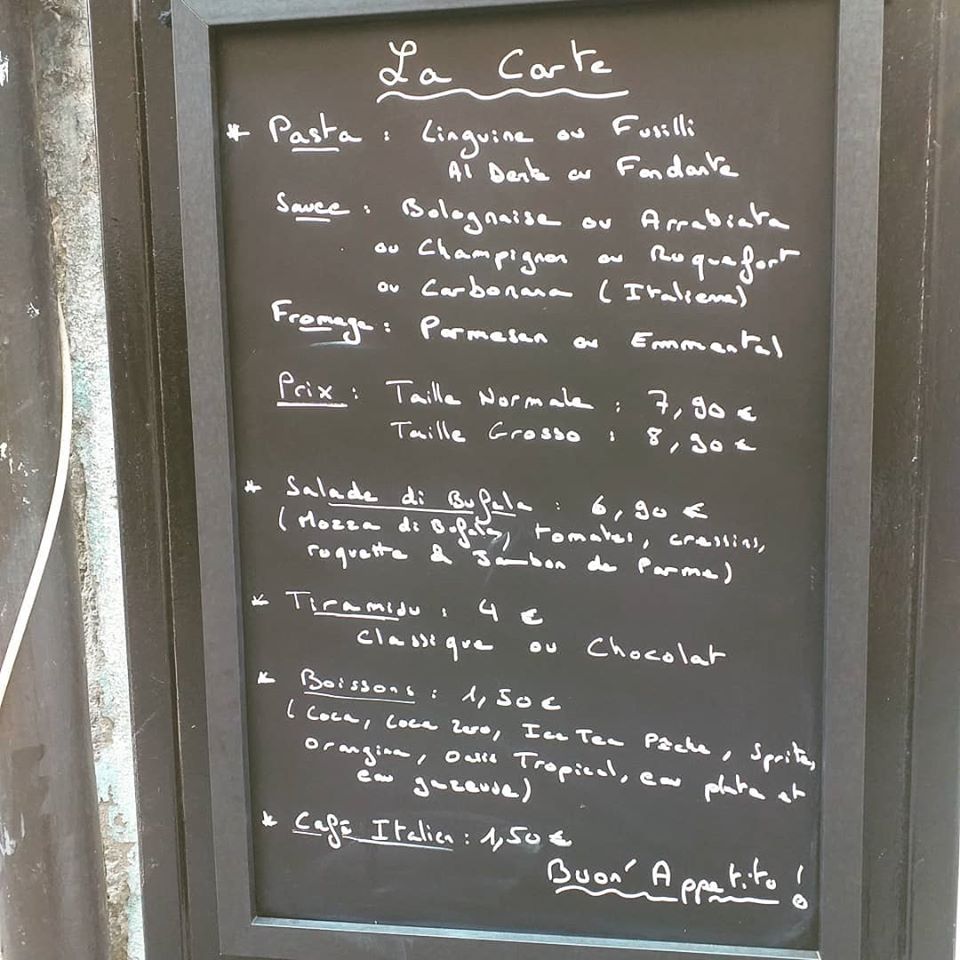 La Carte
* Pasta : Linguine ou Fusilli
Al Dente ou Fondante
Sauce : Bolognaise ou Arrabiata
ou Champignon ou Roquefort
ou Carbonara (Italienne)
Fromage : Parmesan ou Emmental
Prix : Taille Normale : 7,90 €
Taille Grosso : 8,90 €
* Salade di Bufala : 6,90 €
(Mozza di Bufala, tomates, cressins,
roquette & Jambon de Parme)
* Tiramisu : 4 €
Classique ou Chocolat
* Boissons : 1,50 €
(Coca, Coca zero, Ice Tea Pêche, Sprite,
Orangina, Oasis Tropical, eau plate et
eau gazeuse)
* Café Italien : 1,50 €
Buon' Appetito !